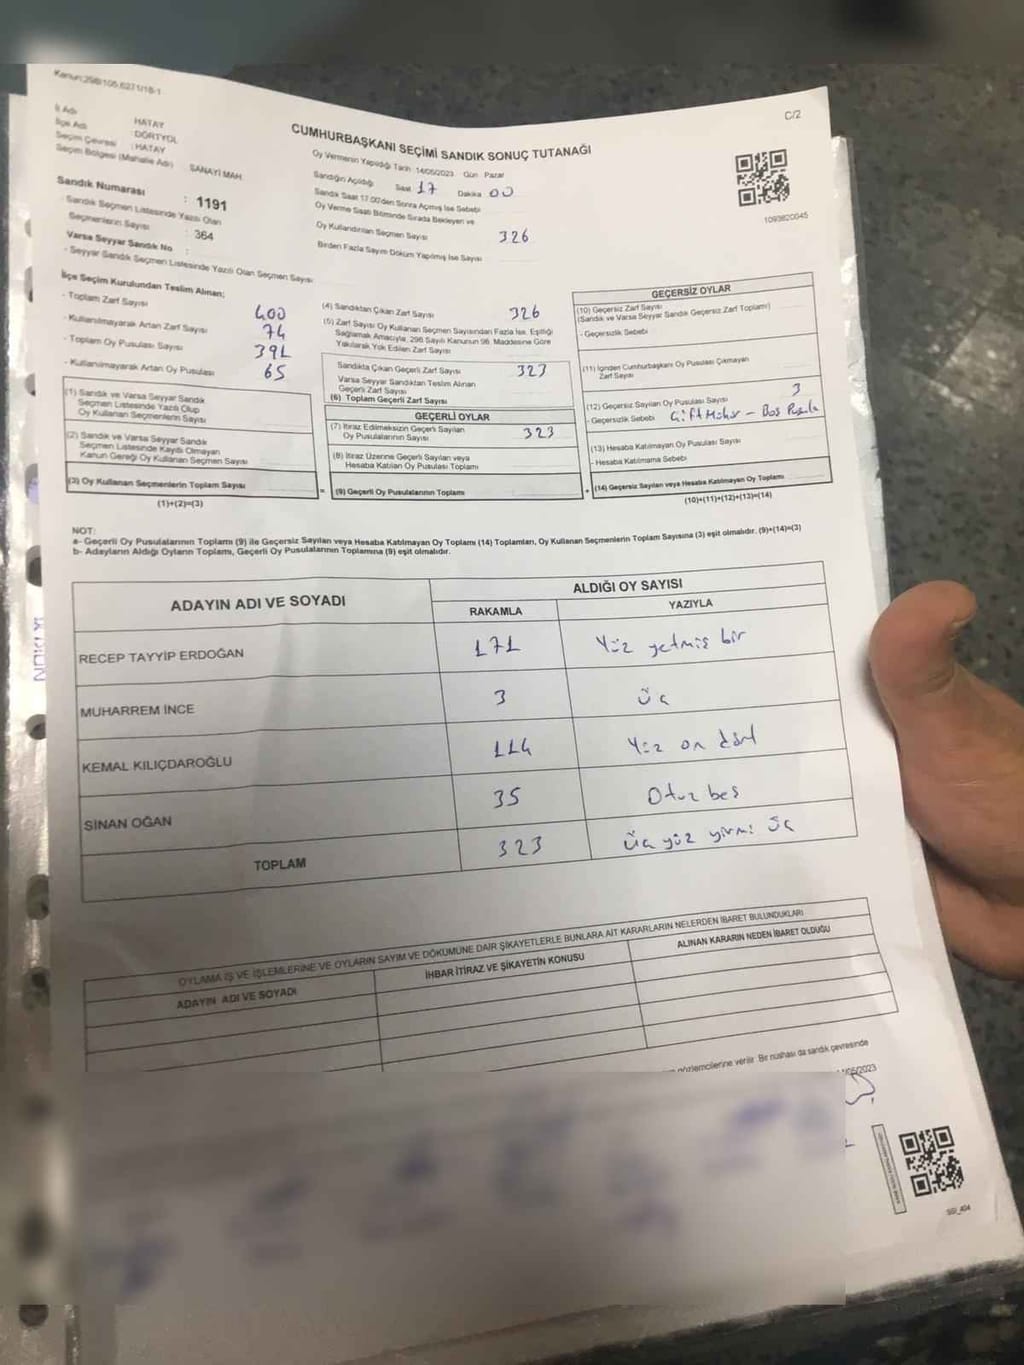 Kanun:298/105,6271/18-1
C/2
İl Adı : HATAY
İlçe Adı : DÖRTYOL
Seçim Çevresi : HATAY
Seçim Bölgesi (Mahalle Adı) SANAYİ MAH.
Sandık Numarası : 1191
- Sandık Seçmen Listesinde Yazılı Olan
Seçmenlerin Sayısı : 364
Varsa Seyyar Sandık No :
- Seyyar Sandık Seçmen Listesinde Yazılı Olan Seçmen Sayısı
CUMHURBAŞKANI SEÇİMİ SANDIK SONUÇ TUTANAĞI
Oy Vermenin Yapıldığı Tarih 14/05/2023 Gün Pazar
Sandığın Açıldığı Saat 17 Dakika 00
Sandık Saat 17.00'den Sonra Açılmış İse Sebebi
Oy Verme Saati Bitiminde Sırada Bekleyen ve
Oy Kullandırılan Seçmen Sayısı 326
Birden Fazla Sayım Döküm Yapılmış İse Sayısı
1093820045
İlçe Seçim Kurulundan Teslim Alınan;
- Toplam Zarf Sayısı 400
- Kullanılmayarak Artan Zarf Sayısı 74
- Toplam Oy Pusulası Sayısı 391
- Kullanılmayarak Artan Oy Pusulası 65
(1) Sandık ve Varsa Seyyar Sandık
Seçmen Listesinde Yazılı Olup
Oy Kullanan Seçmenlerin Sayısı
(2) Sandık ve Varsa Seyyar Sandık
Seçmen Listesinde Kayıtlı Olmayan
Kanun Gereği Oy Kullanan Seçmen Sayısı
(3) Oy Kullanan Seçmenlerin Toplam Sayısı
(1)+(2)=(3)
(4) Sandıktan Çıkan Zarf Sayısı 326
(5) Zarf Sayısı Oy Kullanan Seçmen Sayısından Fazla İse, Eşitliği
Sağlamak Amacıyla, 298 Sayılı Kanunun 98. Maddesine Göre
Yakılarak Yok Edilen Zarf Sayısı
Sandıkta Çıkan Geçerli Zarf Sayısı 323
Varsa Seyyar Sandıktan Teslim Alınan
Geçerli Zarf Sayısı
(6) Toplam Geçerli Zarf Sayısı
GEÇERLİ OYLAR
(7) İtiraz Edilmeksizin Geçerli Sayılan
Oy Pusulalarının Sayısı 323
(8) İtiraz Üzerine Geçerli Sayılan veya
Hesaba Katılan Oy Pusulası Toplamı
= (9) Geçerli Oy Pusulalarının Toplamı
GEÇERSİZ OYLAR
(10) Geçersiz Zarf Sayısı
(Sandık ve Varsa Seyyar Sandık Geçersiz Zarf Toplamı)
- Geçersizlik Sebebi
(11) İçinden Cumhurbaşkanı Oy Pusulası Çıkmayan
Zarf Sayısı
(12) Geçersiz Sayılan Oy Pusulası Sayısı 3
- Geçersizlik Sebebi Çift Mühür - Boş Pusula
(13) Hesaba Katılmayan Oy Pusulası Sayısı
- Hesaba Katılmama Sebebi
+ (14) Geçersiz Sayılan veya Hesaba Katılmayan Oy Toplamı
(10)+(11)+(12)+(13)=(14)
NOT:
a- Geçerli Oy Pusulalarının Toplamı (9) ile Geçersiz Sayılan veya Hesaba Katılmayan Oy Toplamı (14) Toplamları, Oy Kullanan Seçmenlerin Toplam Sayısına (3) eşit olmalıdır. (9)+(14)=(3)
b- Adayların Aldığı Oyların Toplamı, Geçerli Oy Pusulalarının Toplamına (9) eşit olmalıdır.
ADAYIN ADI VE SOYADI
ALDIĞI OY SAYISI
RAKAMLA YAZIYLA
RECEP TAYYİP ERDOĞAN 171 Yüz yetmiş bir
MUHARREM İNCE 3 Üç
KEMAL KILIÇDAROĞLU 114 Yüz on dört
SİNAN OĞAN 35 Otuz beş
TOPLAM 323 Üç yüz yirmi üç
OYLAMA İŞ VE İŞLEMLERİNE VE OYLARIN SAYIM VE DÖKÜMÜNE DAİR ŞİKAYETLERLE BUNLARA AİT KARARLARIN NELERDEN İBARET BULUNDUKLARI
ADAYIN ADI VE SOYADI İHBAR İTİRAZ VE ŞİKAYETİN KONUSU ALINAN KARARIN NEDEN İBARET OLDUĞU
gözlemcilerine verilir. Bir nüshası da sandık çevresinde
/05/2023